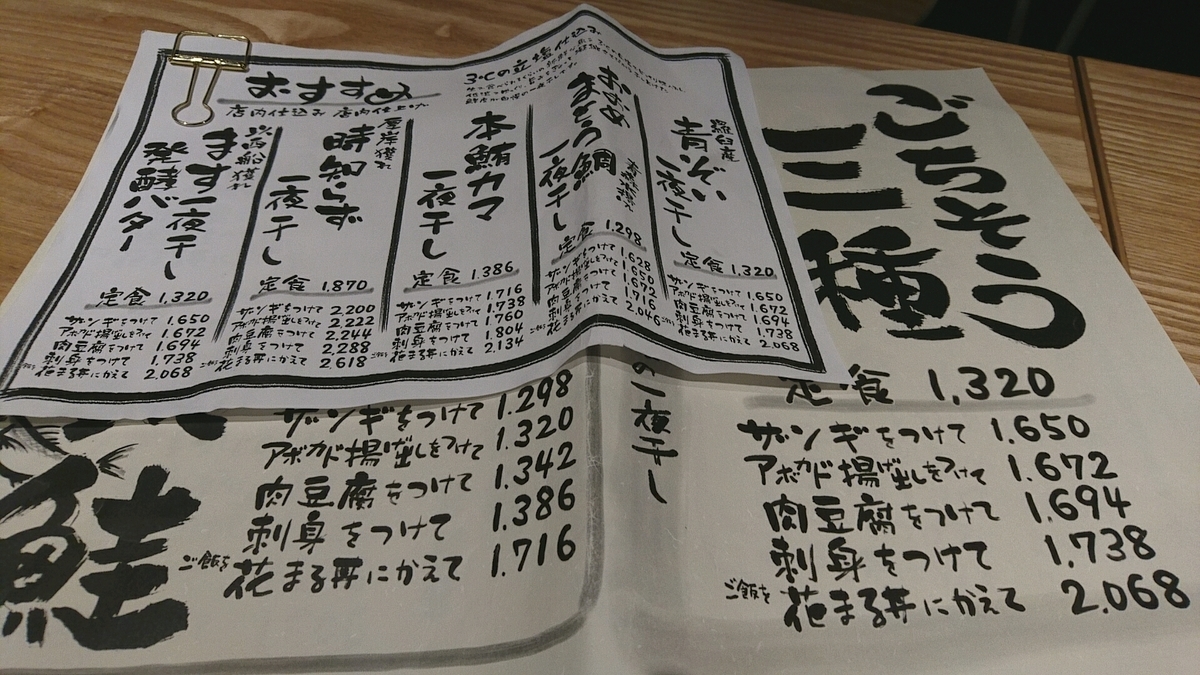 おすすめ
店内仕込み 店内仕上げ
3℃の立塩仕込み
羅臼産
青ぞい
一夜干し
定食 1,320
ザンギをつけて 1.650
アボカド揚げ出しをつけて 1.672
肉豆腐をつけて 1.694
刺身をつけて 1.738
花まる丼にかえて 2.068
一夜干し
定食 1.298
1.628
1.650
1.672
1.716
2.046
本鮪カマ
一夜干し
定食 1.386
ザンギをつけて 1.716
アボカド揚げ出しをつけて 1.738
肉豆腐をつけて 1.760
刺身をつけて 1.804
花まる丼にかえて 2.134
厚岸獲れ
時知らず
一夜干し
定食 1.870
ザンギをつけて 2.200
アボカド揚げ出しをつけて 2.222
肉豆腐をつけて 2.244
刺身をつけて 2.288
花まる丼にかえて 2.618
ます一夜干し
発酵バター
定食 1.320
ザンギをつけて 1.650
アボカド揚げ出しをつけて 1.672
肉豆腐をつけて 1.694
刺身をつけて 1.738
花まる丼にかえて 2.068
ごちそう
三種
の一夜干し
定食 1,320
ザンギをつけて 1.650
アボカド揚げ出しをつけて 1.672
肉豆腐をつけて 1.694
刺身をつけて 1.738
ご飯を 花まる丼にかえて 2.068
鮭
ザンギをつけて 1.298
アボカド揚げ出しをつけて 1.320
肉豆腐をつけて 1.342
刺身をつけて 1.386
ご飯を 花まる丼にかえて 1.716